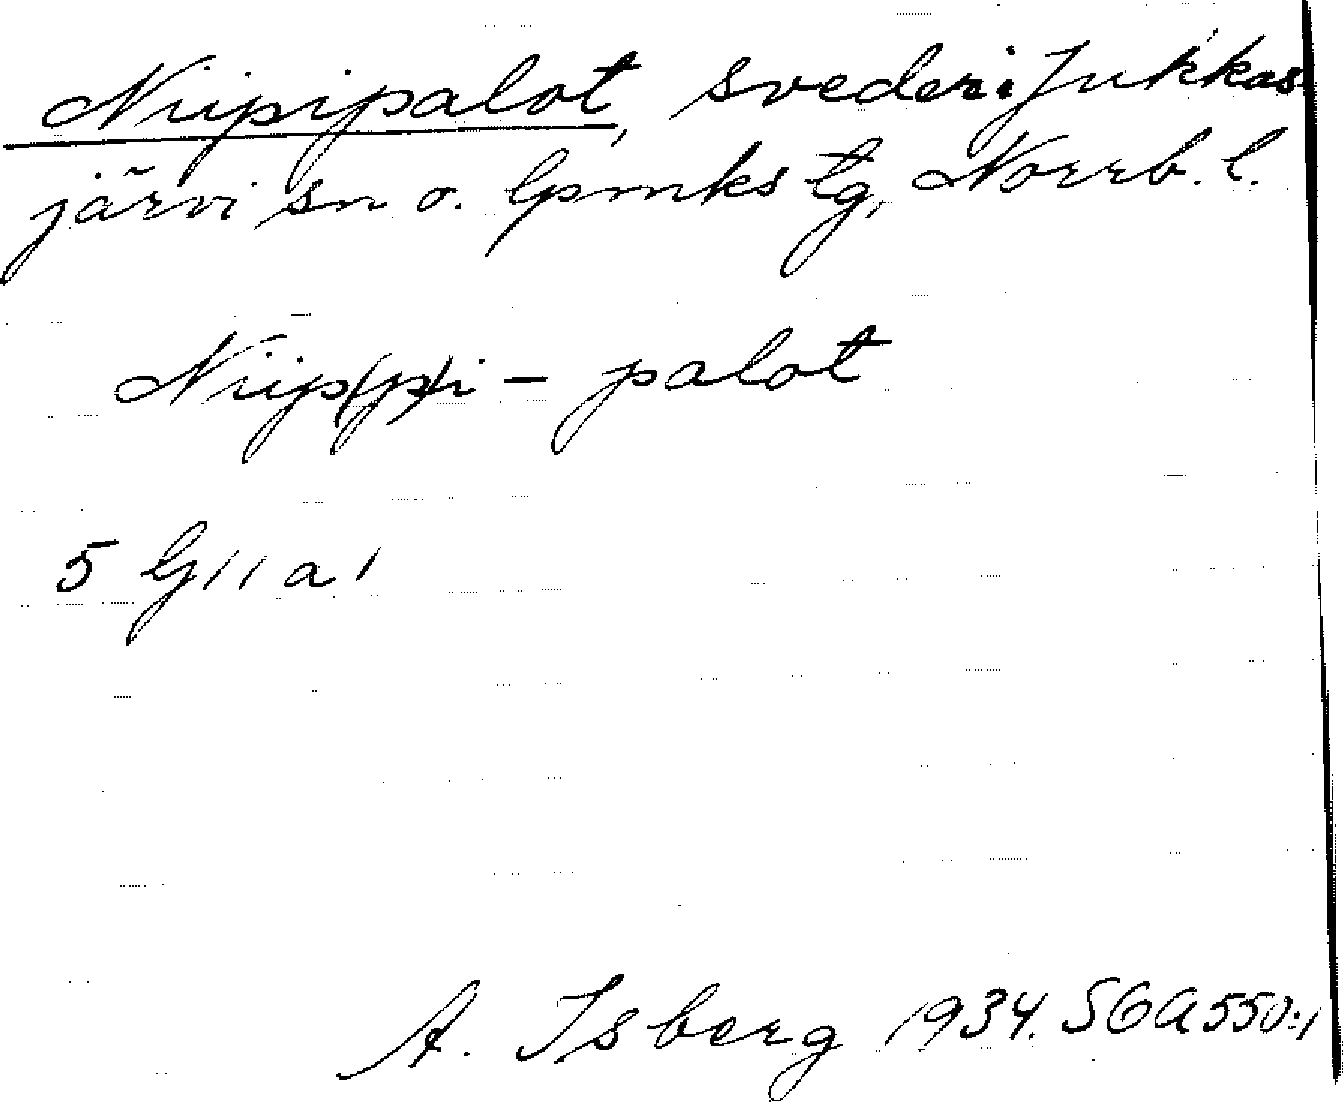 Niipipalot, sveder i Jukkas-
järvi sn o. lpmks tg, Norrb. l.
Niip(p)i - palot
5 G 11 a 1
A. Isberg 1934. SGA 550:1